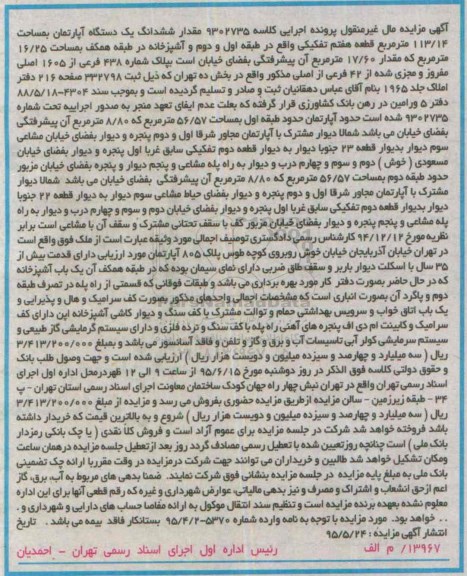 آگهی مزایده مال غیرمنقول پرونده اجرایی کلاسه ۹۳۰۲۷۳۵ مقدار ششدانگ یک دستگاه آپارتمان بمساحت
۱۱۳/۱۴ مترمربع قطعه هفتم تفکیکی واقع در طبقه اول و دوم و آشپزخانه در طبقه همکف بمساحت ۱۶/۲۵
مترمربع که مقدار ۱۷/۶۰ مترمربع آن پیشرفتگی بفضای خیابان است بپلاک شماره ۴۳۸ فرعی از ۱۶۰۵ اصلی
مفروز و مجزی شده از ۴۲ فرعی از اصلی مذکور واقع در بخش ده تهران که ذیل ثبت ۳۳۲۷۹۸ صفحه ۲۱۶ دفتر
املاک جلد ۱۹۶۵ بنام آقای عباس دهقانیان ثبت و صادر و تسلیم گردیده است و بموجب سند ۴۳۰۴-۸۸/۵/۱۸
دفتر ۵ ورامین در رهن بانک کشاورزی قرار گرفته که بعلت عدم ایفای تعهد منجر به صدور اجراییه تحت شماره
۹۳۰۲۷۳۵ شده است حدود آپارتمان حدود طبقه اول بمساحت ۵۶/۵۷ مترمربع که ۸/۸۰ مترمربع آن پیشرفتگی
بفضای خیابان می باشد شمالا دیوار مشترک با آپارتمان مجاور شرقا اول و دوم پنجره و دیوار بفضای خیابان مشاعی
سوم دیوار بدیوار قطعه ۲۳ جنوبا دیوار به دیوار قطعه دوم تفکیکی سابق غربا اول پنجره و دیوار بفضای خیابان
مسعودی ( خوش ) دوم و سوم و چهارم درب و دیوار به راه پله مشاعی و پنجم دیوار و پنجره بفضای خیابان مزبور
حدود طبقه دوم بمساحت ۵۶/۵۷ مترمربع که ۸/۸۰ مترمربع آن پیشرفتگی بفضای خیابان می باشد شمالا دیوار
مشترک با آپارتمان مجاور شرقا اول و دوم پنجره و دیوار بفضای حیاط مشاعی سوم دیوار به دیوار قطعه ۲۲ جنوبا
دیوار بدیوار قطعه دوم تفکیکی سابق غربا اول پنجره و دیوار بفضای خیابان دوم و سوم و چهارم درب و دیوار به راه
پله مشاعی و پنجم پنجره و دیوار بفضای خیابان مزبور کف با سقف تحتانی مشترک و سقف آن با مشاعی است برابر
نظریه مورخ ۹۴/۱۲/۱۲ کارشناس رسمی دادگستری توصیف اجمالی مورد وثیقه عبارت است از ملک فوق واقع است
در تهران خیابان آذربایجان خیابان خوش روبروی کوچه طوس پلاک ۸۰۵ آپارتمان مورد ارزیابی دارای قدمت بیش از
۳۵ سال با اسکلت دیوار باربر و سقف طاق ضربی دارای نمای سیمان بوده که در طبقه همکف آن یک باب آشپزخانه
که در حال حاضر بصورت دفتر کار مورد بهره برداری می باشد و طبقات فوقانی که قسمتی از راه پله در تصرف طبقه
دوم و پاگرد آن بصورت انباری است که مشخصات اجمالی واحدهای مذکور بصورت کف سرامیک و هال و پذیرایی و
یک باب اتاق خواب و سرویس بهداشتی حمام و توالت مشترک با کف سنگ و دیوار کاشی آشپزخانه اپن دارای کف
سرامیک و کابینت ام دی اف پنجره های آهنی راه پله با کف سنگ و نرده فلزی و دارای سیستم گرمایشی گاز طبیعی و
سیستم سرمایشی کولر آبی تاسیسات آب و برق و گاز و تلفن و فاقد آسانسور می باشد و بمبلغ ۳/۴۱۳/۲۰۰/۰۰۰
ریال ( سه میلیارد و چهارصد و سیزده میلیون و دویست هزار ریال ) ارزیابی شده است و جهت وصول طلب بانک
و حقوق دولتی کلاسه فوق الذکر در روز دوشنبه مورخ ۹۵/۶/۱۵ از ساعت ۹ الی ۱۲ ظهر درمحل اداره اول اجرای
اسناد رسمی تهران واقع در تهران نبش چهار راه جهان کودک ساختمان معاونت اجرای اسناد رسمی استان تهران - پ
۳۴ - طبقه زیرزمین - سالن مزایده ازطریق مزایده حضوری بفروش می رسد و مزایده از مبلغ ۳/۴۱۳/۲۰۰/۰۰۰
ریال ( سه میلیارد و چهارصد و سیزده میلیون و دویست هزار ریال ) شروع و به بالاترین قیمت که خریدار داشته
باشد فروخته خواهد شد شرکت در جلسه مزایده برای عموم آزاد است و فروش کلا نقدی ( یا چک بانکی رمزدار
بانک ملی ) است چنانچه روزتعیین شده با تعطیل رسمی مصادف گردد روز بعد ازتعطیل جلسه مزایده درهمان ساعت
ومکان تشکیل خواهد شد طالبین و خریداران می توانند جهت شرکت درمزایده در وقت مقرربا ارائه چک تضمینی
بانک ملی به مبلغ پایه مزایده در جلسه مزایده بنشانی فوق شرکت نمایند. ضمنا بدهی های مربوط به آب، برق، گاز
اعم ازحق انشعاب و اشتراک و مصرف و نیز بدهی مالیاتی، عوارض شهرداری و غیره که رقم قطعی آنها برای این اداره
معلوم نشده بعهده برنده مزایده است و تنظیم سند انتقال موکول به ارائه مفاصا حساب های دارایی و شهرداری و .
. . خواهد بود. مورد مزایده با توجه به نامه وارده شماره ۵۳۷۰-۹۵/۴/۲ بستانکار فاقد بیمه می باشد . تاریخ
انتشار آگهی مزایده : ۹۵/۵/۲۴
۱۳۹۶۷/ م الف رئیس اداره اول اجرای اسناد رسمی تهران - احمدیان